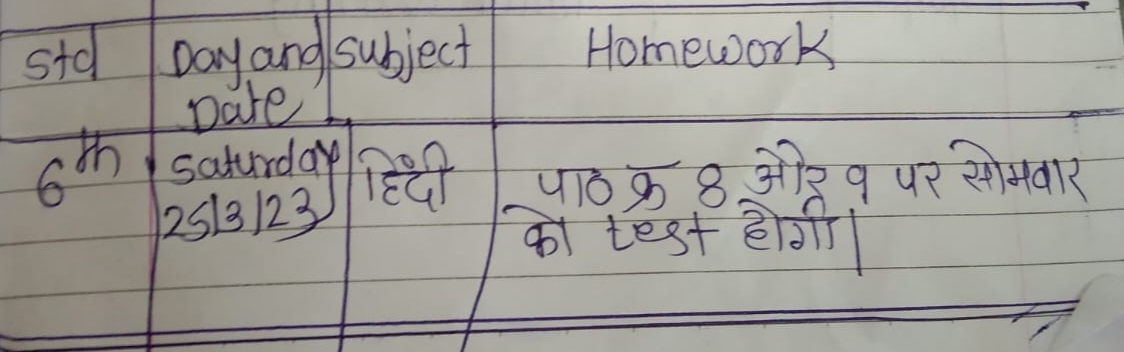 Std Day and Subject Homework
Date
6th Saturday हिंदी पाठ क्र 8 और 9 पर सोमवार
25/3/23 को test होगी।